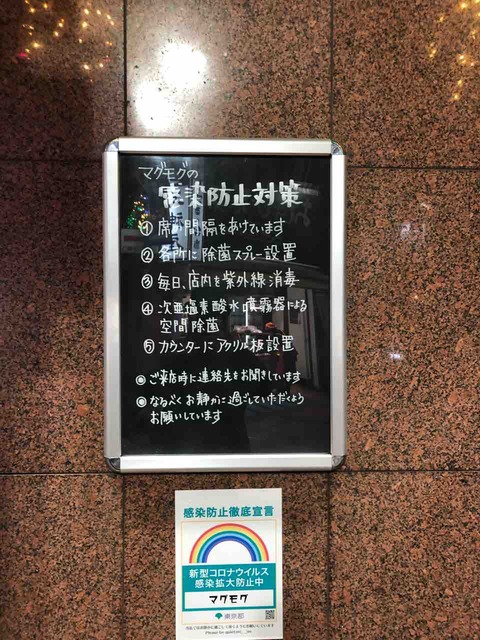 マグモグの
感染防止対策
① 席の間隔をあけています
② 各所に除菌スプレー設置
③ 毎日、店内を紫外線消毒
④ 次亜塩素酸水噴霧器による
空間除菌
⑤ カウンターにアクリル板設置
◉ ご来店時に連絡先をお聞きしています
◉ なるべくお静かに過ごしていただくよう
お願いしています
感染防止徹底宣言
新型コロナウイルス
感染拡大防止中
マグモグ
東京都